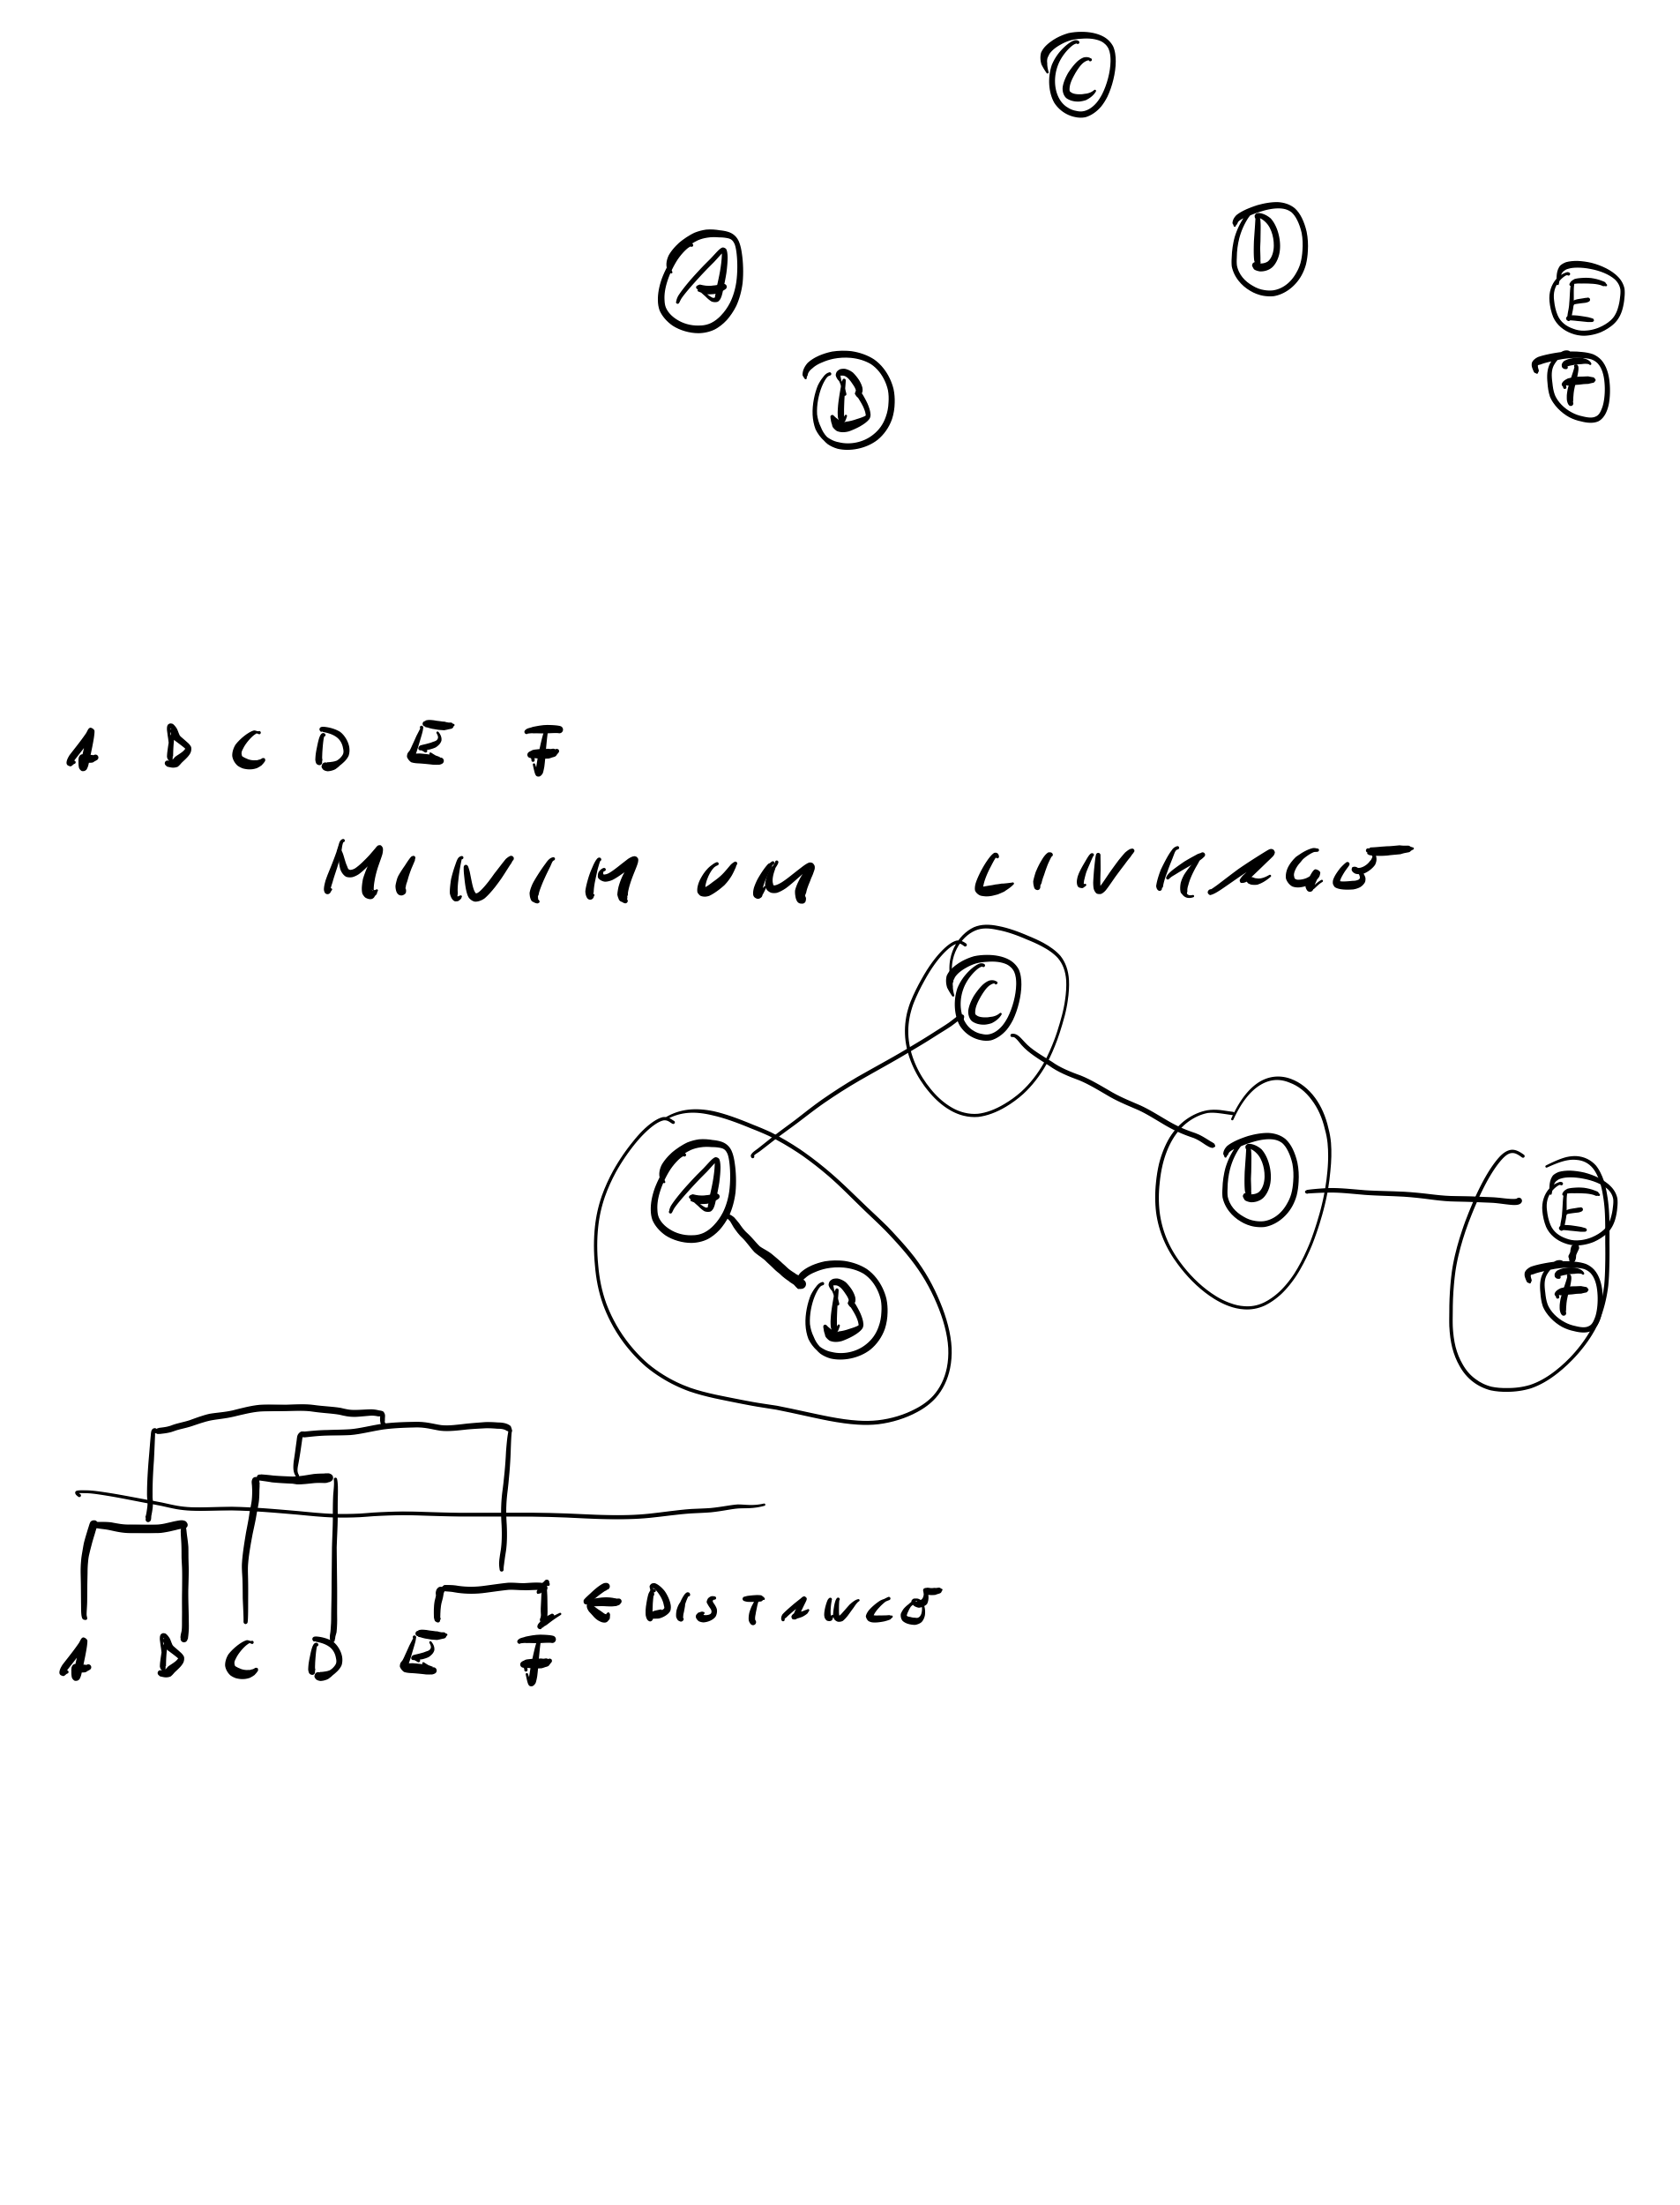 C
D
A
E
B
F
A B C D E F
MINIMUM LINKAGE
C
A
D
E
B
F
← DISTANCE
A B C D E F